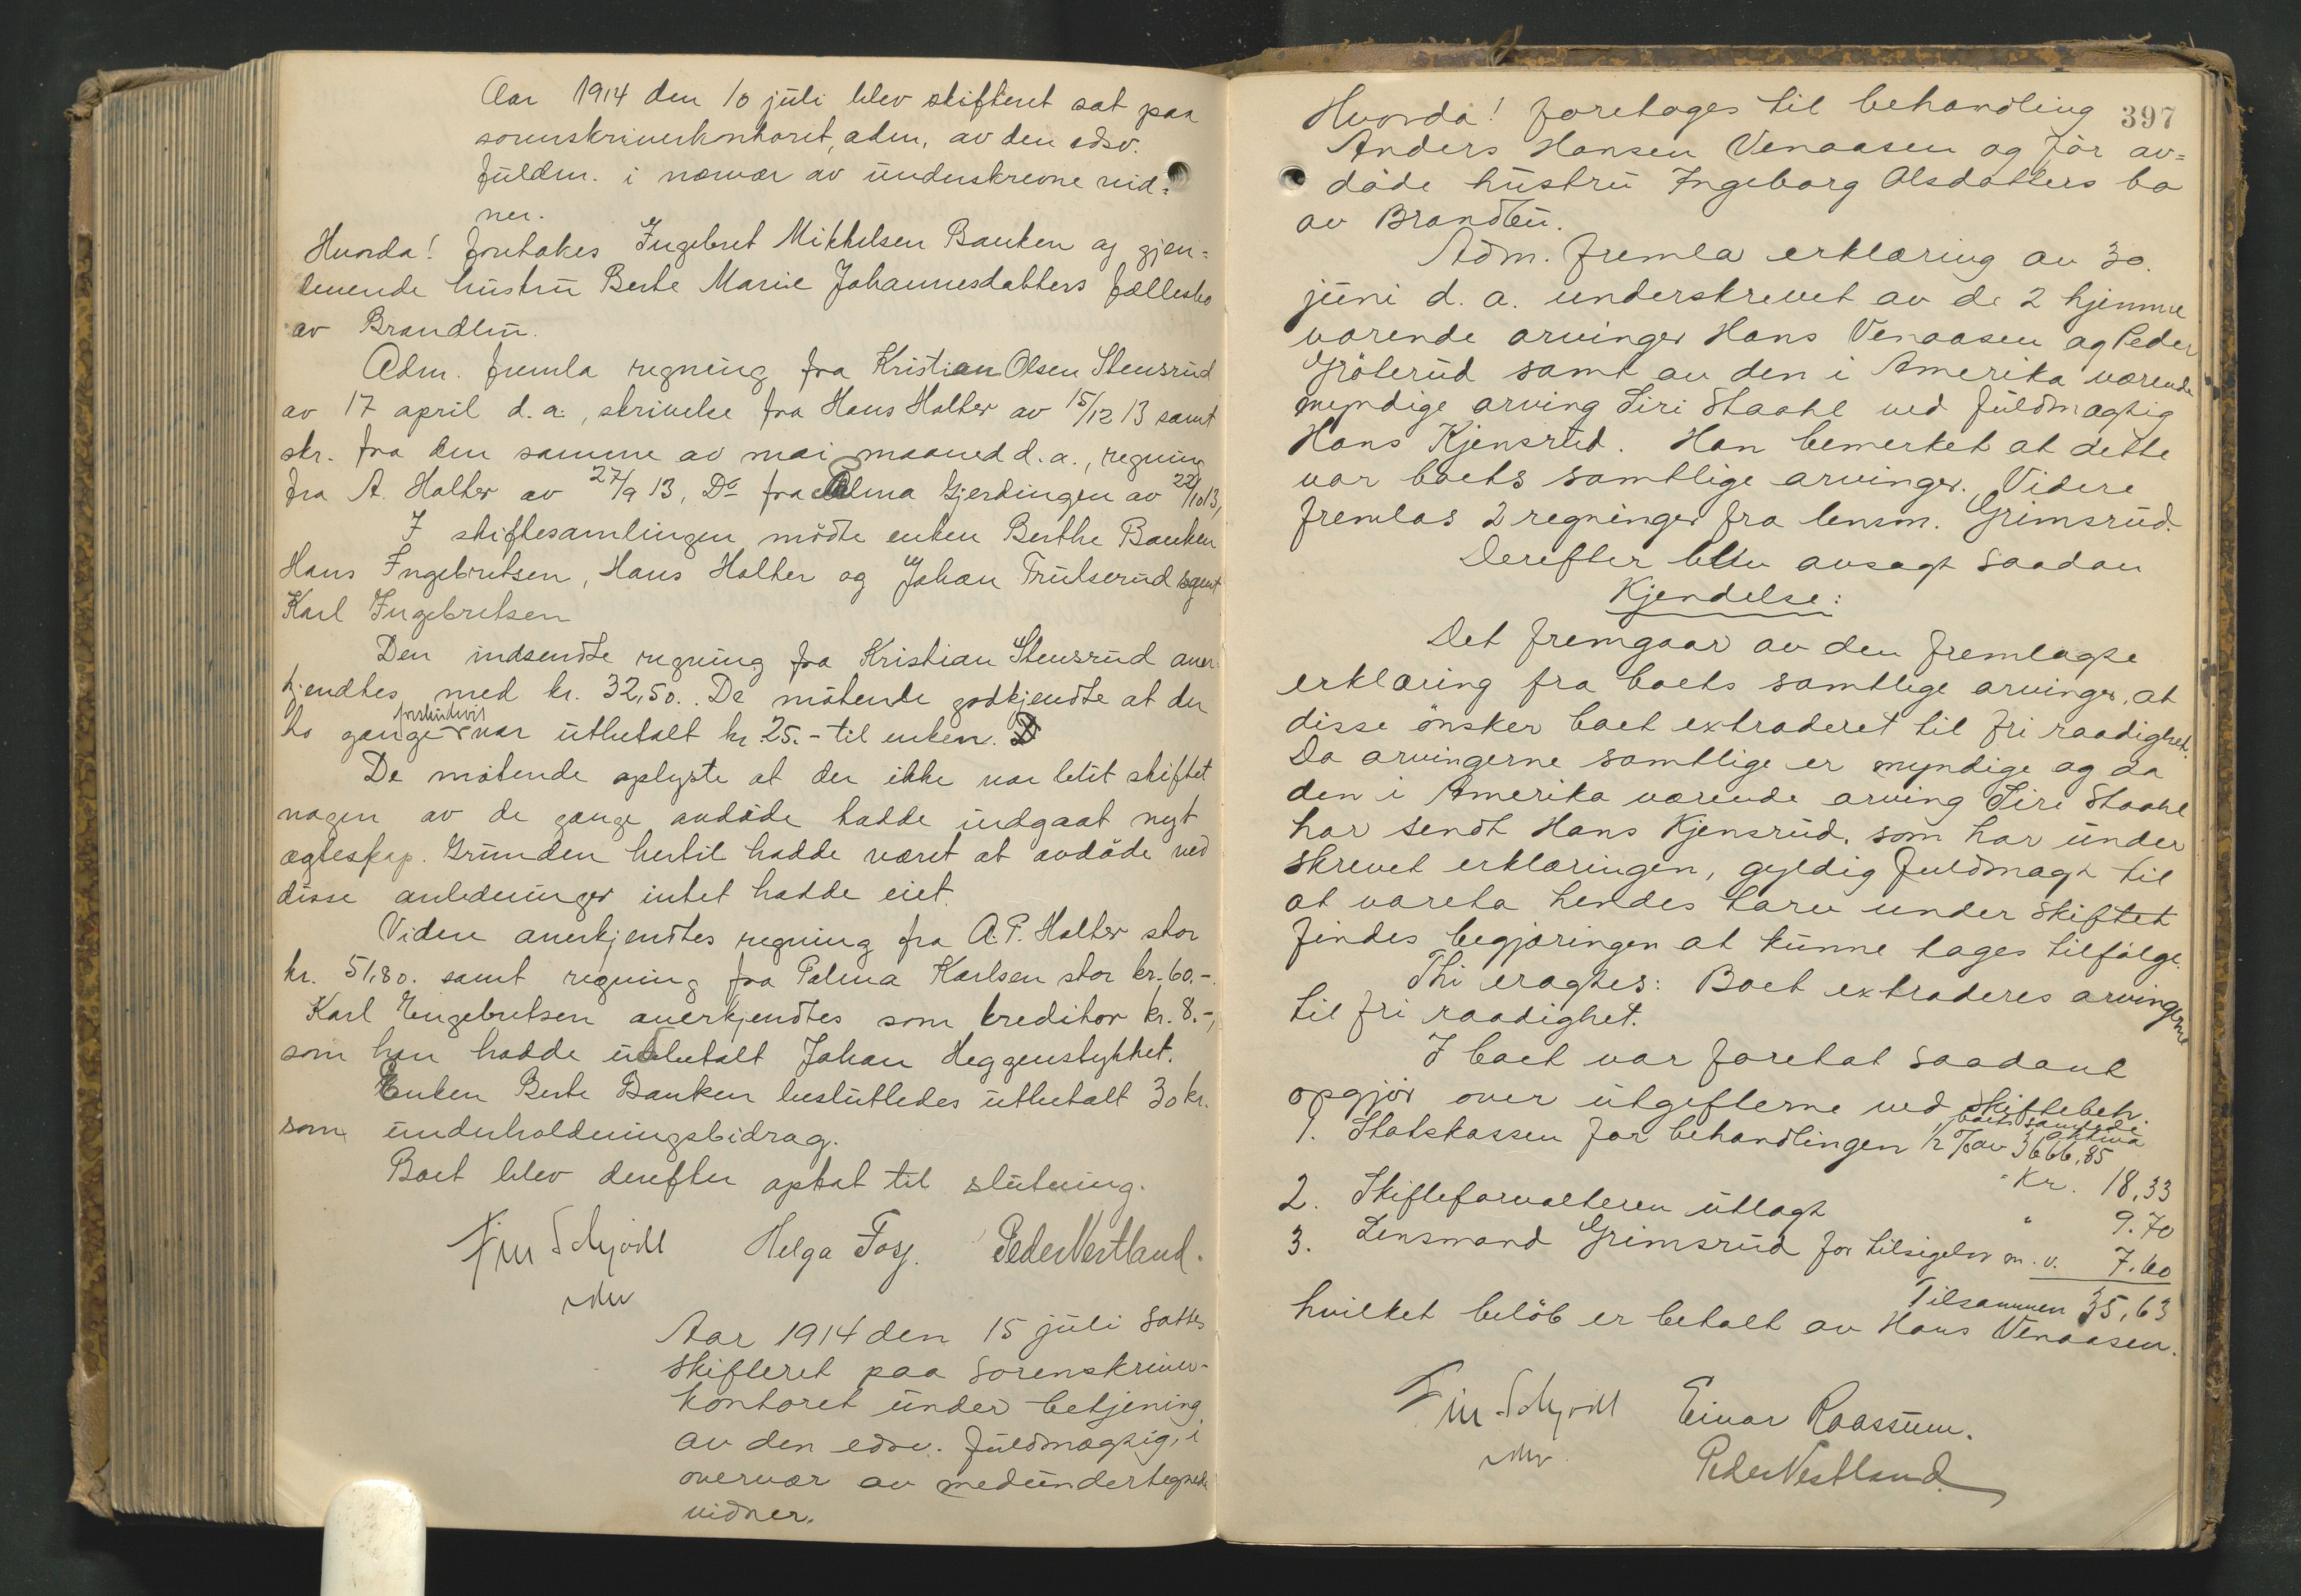 Aar 1914 den 10 juli blev skifteret sat paa
sorenskriverkontoret, adm. av den edsv.
fuldm. i nærvær av underskrevne vid-
ner.
Hvorda! foretakes Ingebret Mikkelsen Banken og gjen-
levende hustru Berte Marie Johannesdatters fællesbo
av Brandbu.
Adm. fremla regning fra Kristian Olsen Stensrud
av 17 april d. a., skrivelse fra Hans Halter av 15/12 13 samt
skr. fra den samme av mai maaned d. a., regning
fra A. Halter av 27/9 13, Do fra Palma Gjerdingen av 22/10 13,
I skiftesamlingen mödte enken Berthe Banken
Hans Ingebretsen, Hans Halter og Johan Trulserud samt
Karl Ingebretsen
Den indsendte regning fra Kristian Stensrud aner-
kjendtes med kr. 32,50. De mötende godkjendte at der
to gange forskudvis var utbetalt kr. 25.- til enken.
De mötende oplyste at der ikke var blit skiftet
nogen av de gange avdöde hadde indgaat nyt
egteskap. Grunden hertil hadde været at avdöde ved
disse anledninger intet hadde eiet.
Videre anerkjendtes regning fra A. P. Halter stor
kr. 51,80. samt regning fra Palma Karlsen stor kr. 60.-.
Karl Engebretsen anerkjendtes som kreditor kr. 8.-,
som han hadde utbetalt Johan Heggenstykket.
Enken Berte Banken besluttedes utbetalt 30 kr.
som underholdningsbidrag.
Boet blev derefter optat til slutning.
Fin Schjödt Helga Fosz. Peder Vestland.
Aar 1914 den 15 juli sattes
skifteret paa sorenskriver-
kontoret under betjening
av den edsv. fuldmægtig, i
overvær av medundertegnede
vidner.
397
Hvorda! foretages til behandling
Anders Hansen Venaasen og för av-
döde hustru Ingeborg Olsdatters bo
av Brandbu.
Adm. fremla erklæring av 30.
juni d. a. underskrevet av de 2 hjemme
værende arvinger Hans Venaasen og Peder
Gröterud samt av den i Amerika værende
myndige arving Siri Staahl ved fuldmægtig
Hans Kjensrud. Han bemerket at dette
var boets samtlige arvinger. Videre
fremlas 2 regninger fra lensm. Grimsrud.
Derefter blev avsagt saadan
Kjendelse:
Det fremgaar av den fremlagte
erklæring fra boets samtlige arvinger, at
disse önsker boet extraderet til fri raadighet.
Da arvingerne samtlige er myndige og da
den i Amerika værende arving Siri Staahl
har sendt Hans Kjensrud, som har under
skrevet erklæringen, gyldig fuldmagt til
at vareta hendes tarv under skiftet
findes begjæringen at kunne tages tilfölge.
Thi eragtes: Boet extraderes arvingerne
til fri raadighet.
I boet var foretat saadant
opgjör over utgifterne ved skiftebeh.
1. Statskassen for behandlingen 1/2 % av boets samlede aktiva 3666,85
Kr. 18,33
2. Skifteforvalteren utlagt " 9.70
3. Lensmand Grimsrud for tilsigelser m. v. 7.60
Tilsammen 35,63
hvilket belöb er betalt av Hans Venaasen.
Fin Schjödt Einar Raassum.
Peder Vestland.